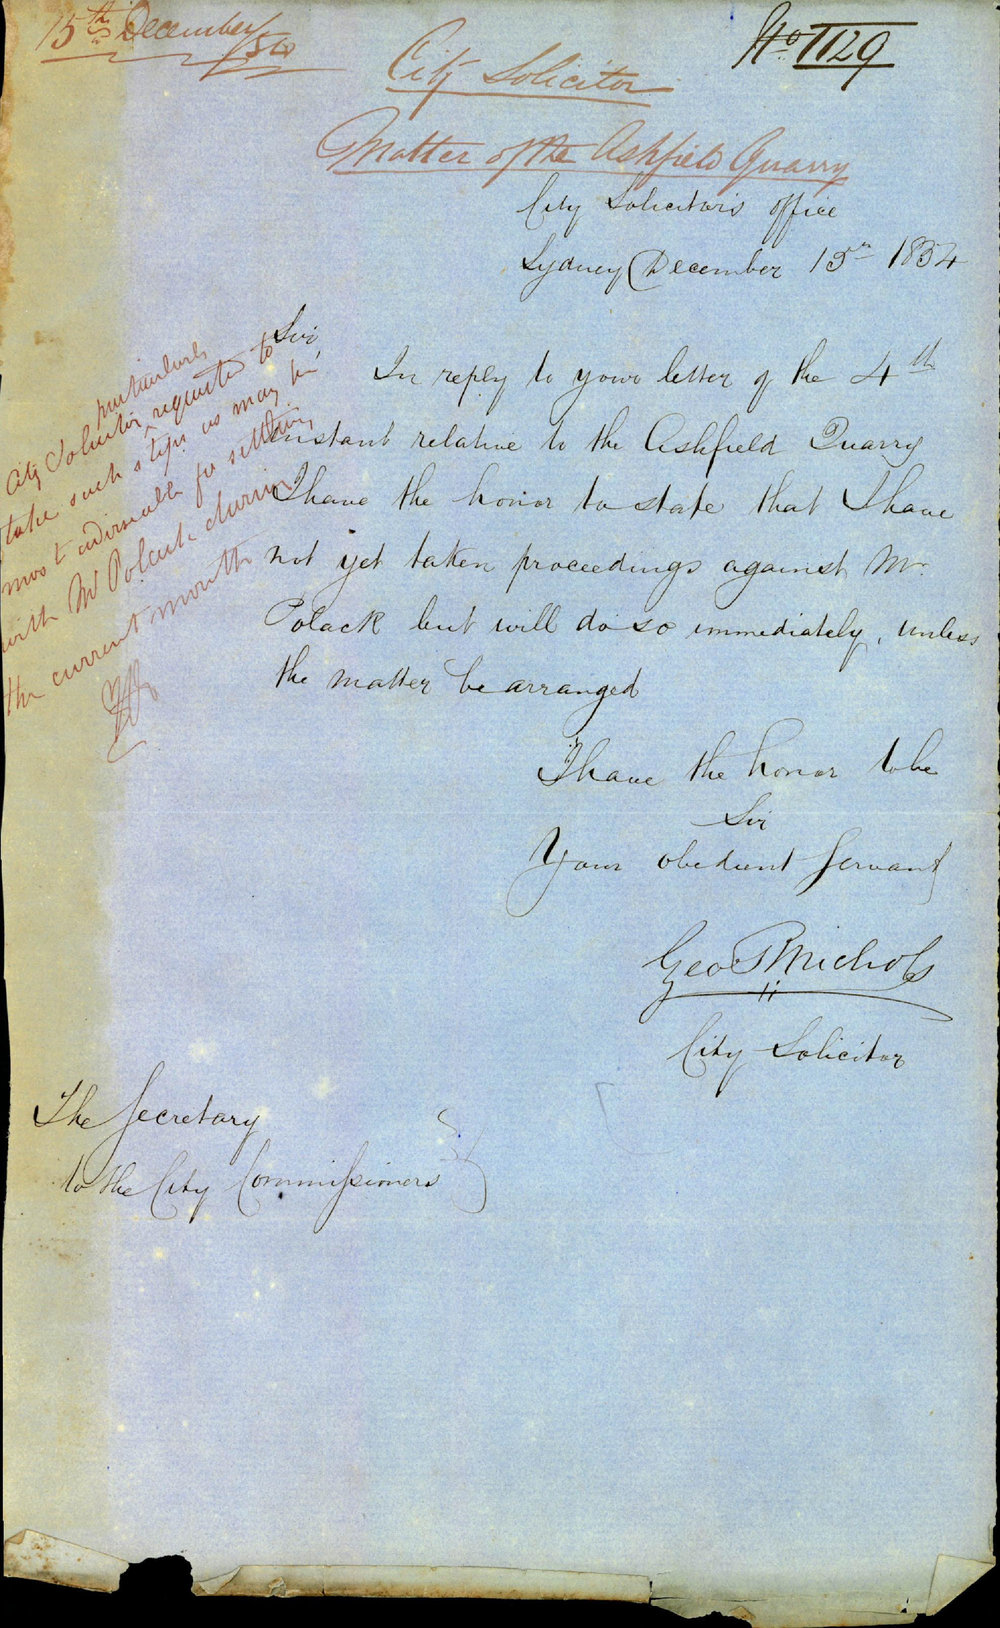 15th December/54
No. 1129
City Solicitor
Matter of the Ashfield Quarry
City Solicitor's office
Sydney December 15th 1854
Sir,
In reply to your letter of the 4th
instant relative to the Ashfield Quarry
I have the honor to state that I have
not yet taken proceedings against Mr.
Polack but will do so immediately, unless
the matter be arranged
I have the honor to be
Sir
Your obedient Servant
Geo R Nichols
City Solicitor
The Secretary
to the City Commissioners
particularly
City Solicitor requested to
take such steps as may be
most advisable for settling
with Mr Polack during
the current month